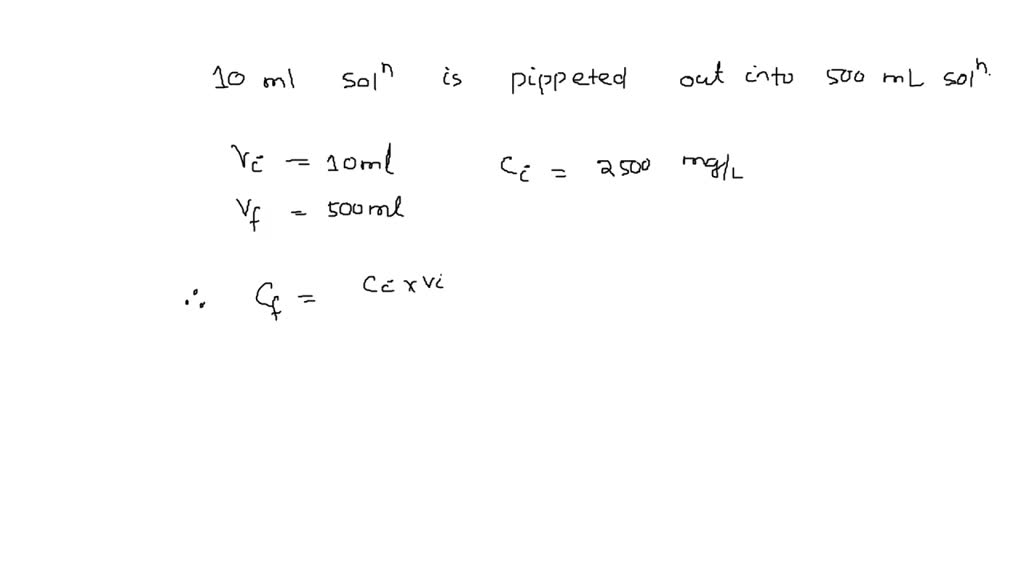 10 ml solⁿ is pippeted out into 500 mL solⁿ.
Vi = 10 ml Ci = 2500 mg/L
Vf = 500 ml
∴ Cf = Ci x Vi